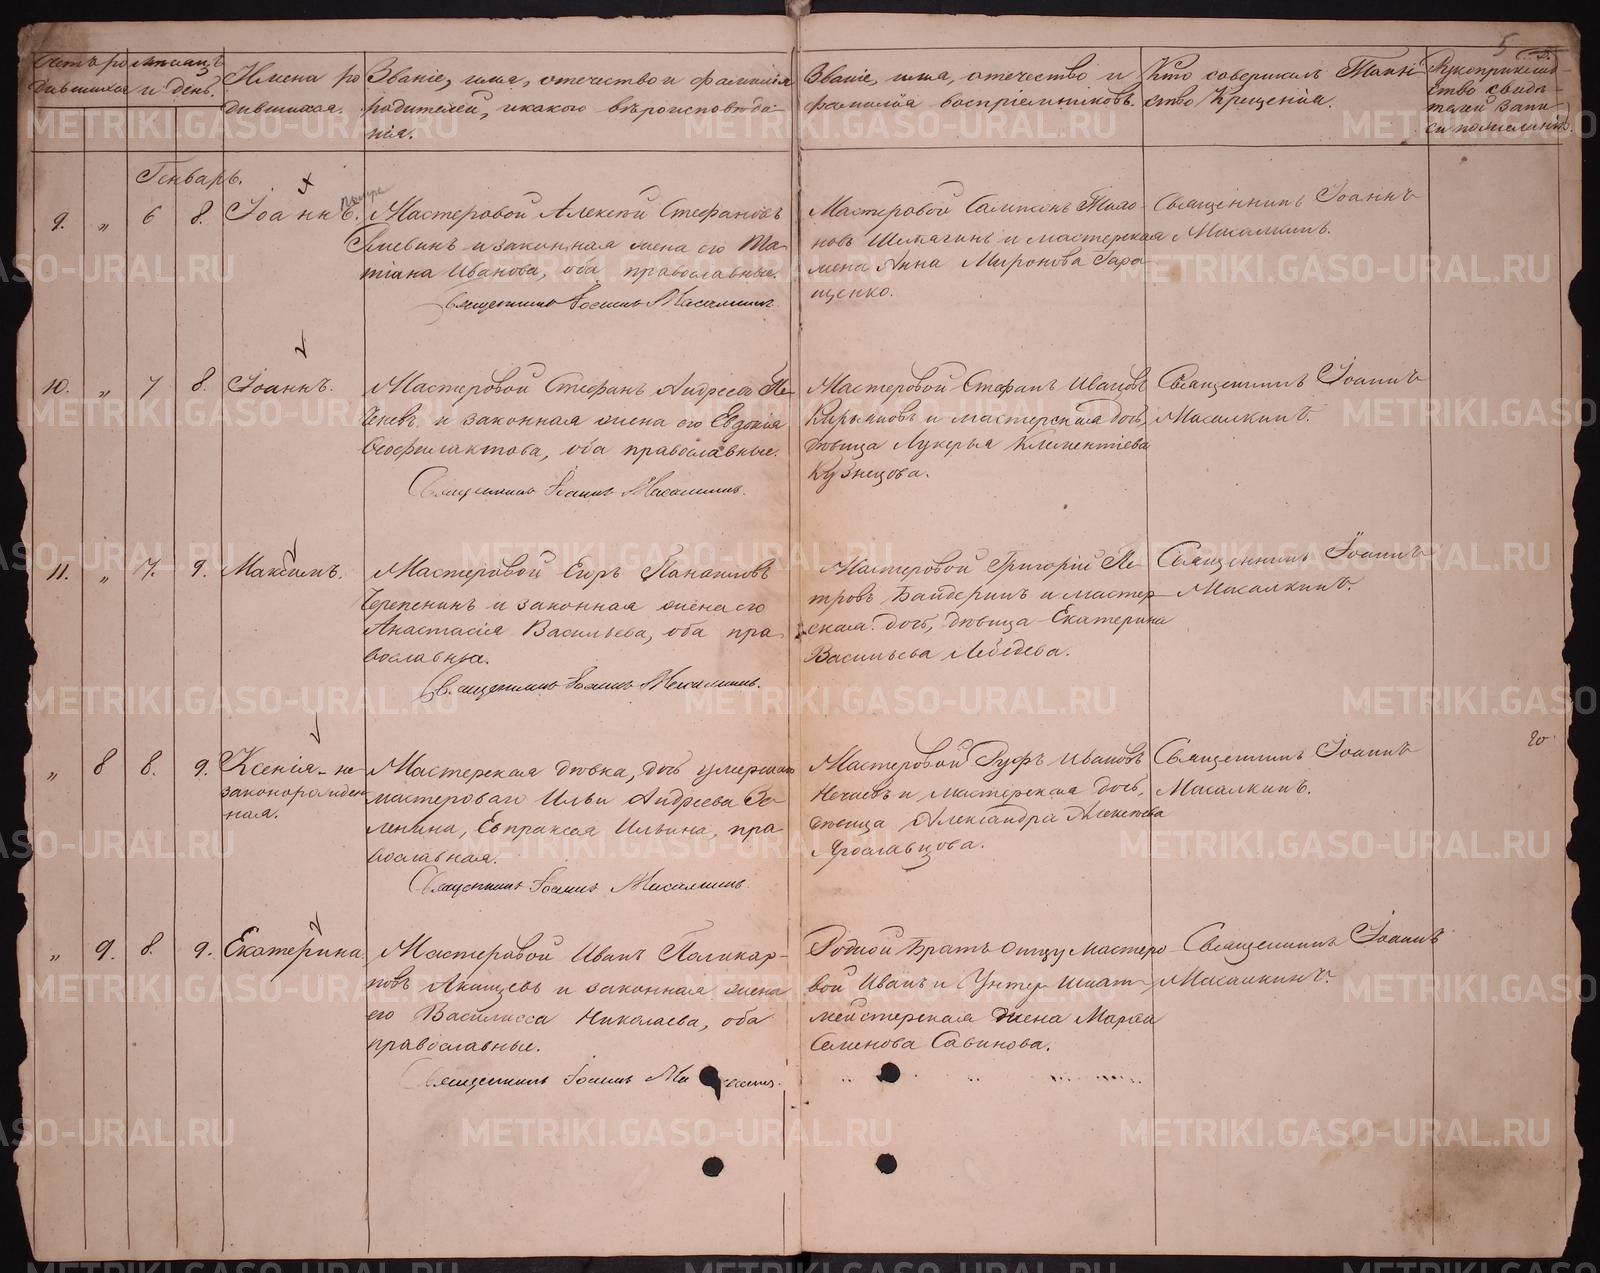 Счетъ ро мѣсяцъ
дившихся и день.
Имена ро
дившихся.
Званіе, имя, отечество и фамилія
родителей, и какого вѣроисповѣда-
нія.
Званіе, имя, отечество и
фамилія воспріемниковъ.
Кто совершалъ Таин
ство Крещенія.
Рукоприклад-
ство свидѣ-
телей запи-
си по желанію.
5
Генварь.
9. „ 6 8. Іоаннъ.
Мастеровой Алексѣй Стефановъ
и законная жена его Та-
тіана Иванова, оба православные.
Священникъ Іоаннъ Масалкинъ.
Мастеровой Сампсонъ Тихо-
новъ и мастерская
жена Анна Миронова Гара-
щенко.
Священникъ Іоаннъ
Масалкинъ.
10. „ 7 8. Іоаннъ.
Мастеровой Стефанъ Андреевъ Пе-
и законная жена его Евдокія
Феофилактова, оба православные.
Священникъ Іоаннъ Масалкинъ.
Мастеровой Стефанъ Ивановъ
Кирьяновъ и мастерская дочь,
дѣвица Лукерья Клементіева
Кузнецова.
Священникъ Іоаннъ
Масалкинъ.
11. „ 7. 9. Максимъ.
Мастеровой Егоръ
Черепенинъ и законная жена его
Анастасія Васильева, оба пра-
вославные.
Священникъ Іоаннъ Масалкинъ.
Мастеровой Григорій Пе-
тровъ Байдеринъ и мастер-
ская дочь, дѣвица Екатерина
Васильева Лебедева.
Священникъ Іоаннъ
Масалкинъ.
„ 8 8. 9. Ксенія не-
законорожден-
ная.
Мастерская дѣвка, дочь умершаго
мастероваго Ильи Андреева Зе-
ленина, Евпраксія Ильина, пра-
вославная.
Священникъ Іоаннъ Масалкинъ.
Мастеровой Руфъ Ивановъ
Нечаевъ и мастерская дочь,
дѣвица Александра Алексѣева
Ярославцова.
Священникъ Іоаннъ
Масалкинъ.
„ 9. 8. 9. Екатерина
Мастеровой Иванъ Поликар-
повъ Акищевъ и законная жена
его Василисса Николаева, оба
православные.
Священникъ Іоаннъ
Родной братъ отцу мастеро-
вой Иванъ и Унтер шихт-
мейстерская жена Марѳа
Семенова Савинова.
Священникъ Іоаннъ
Масалкинъ.
METRIKI.GASO-URAL.RU